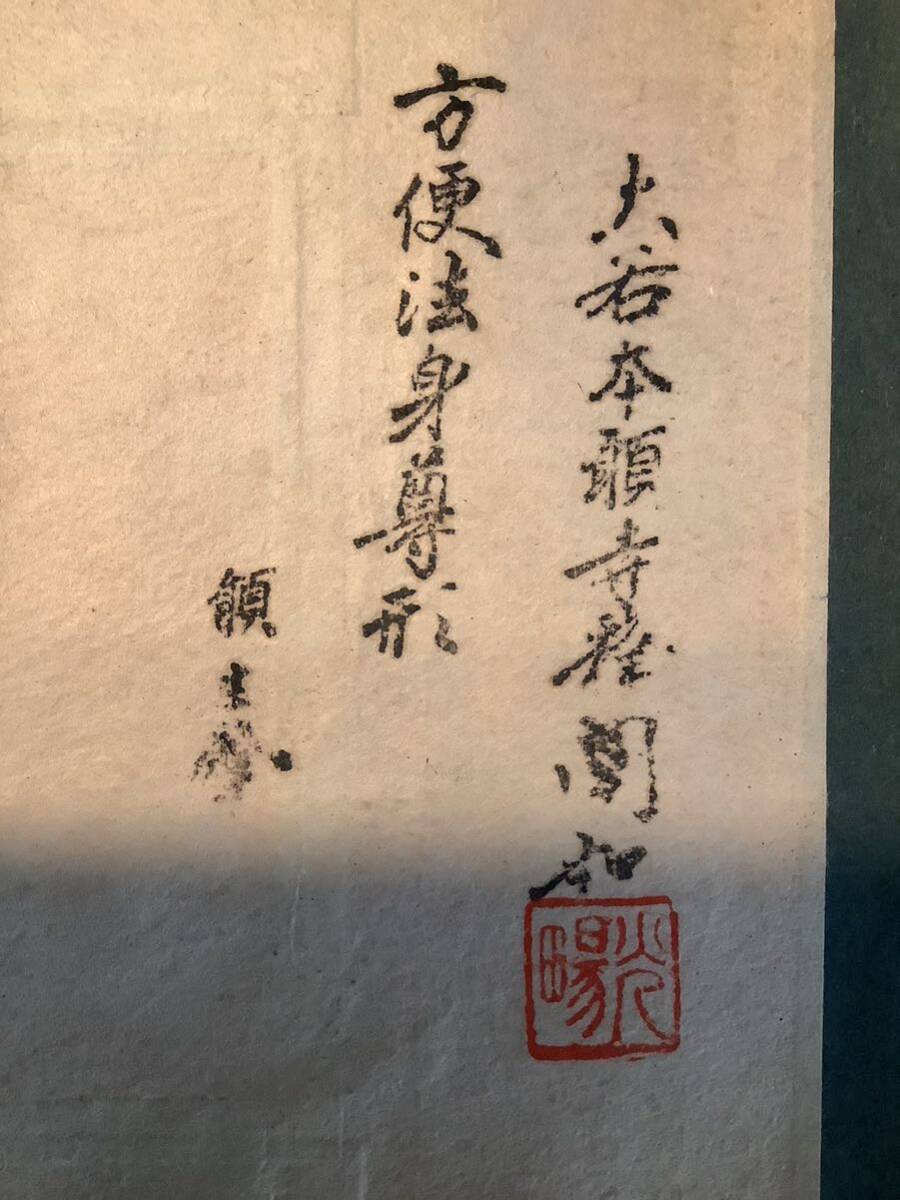 大谷本願寺釋闡如
光暢
方便法身尊形
願主